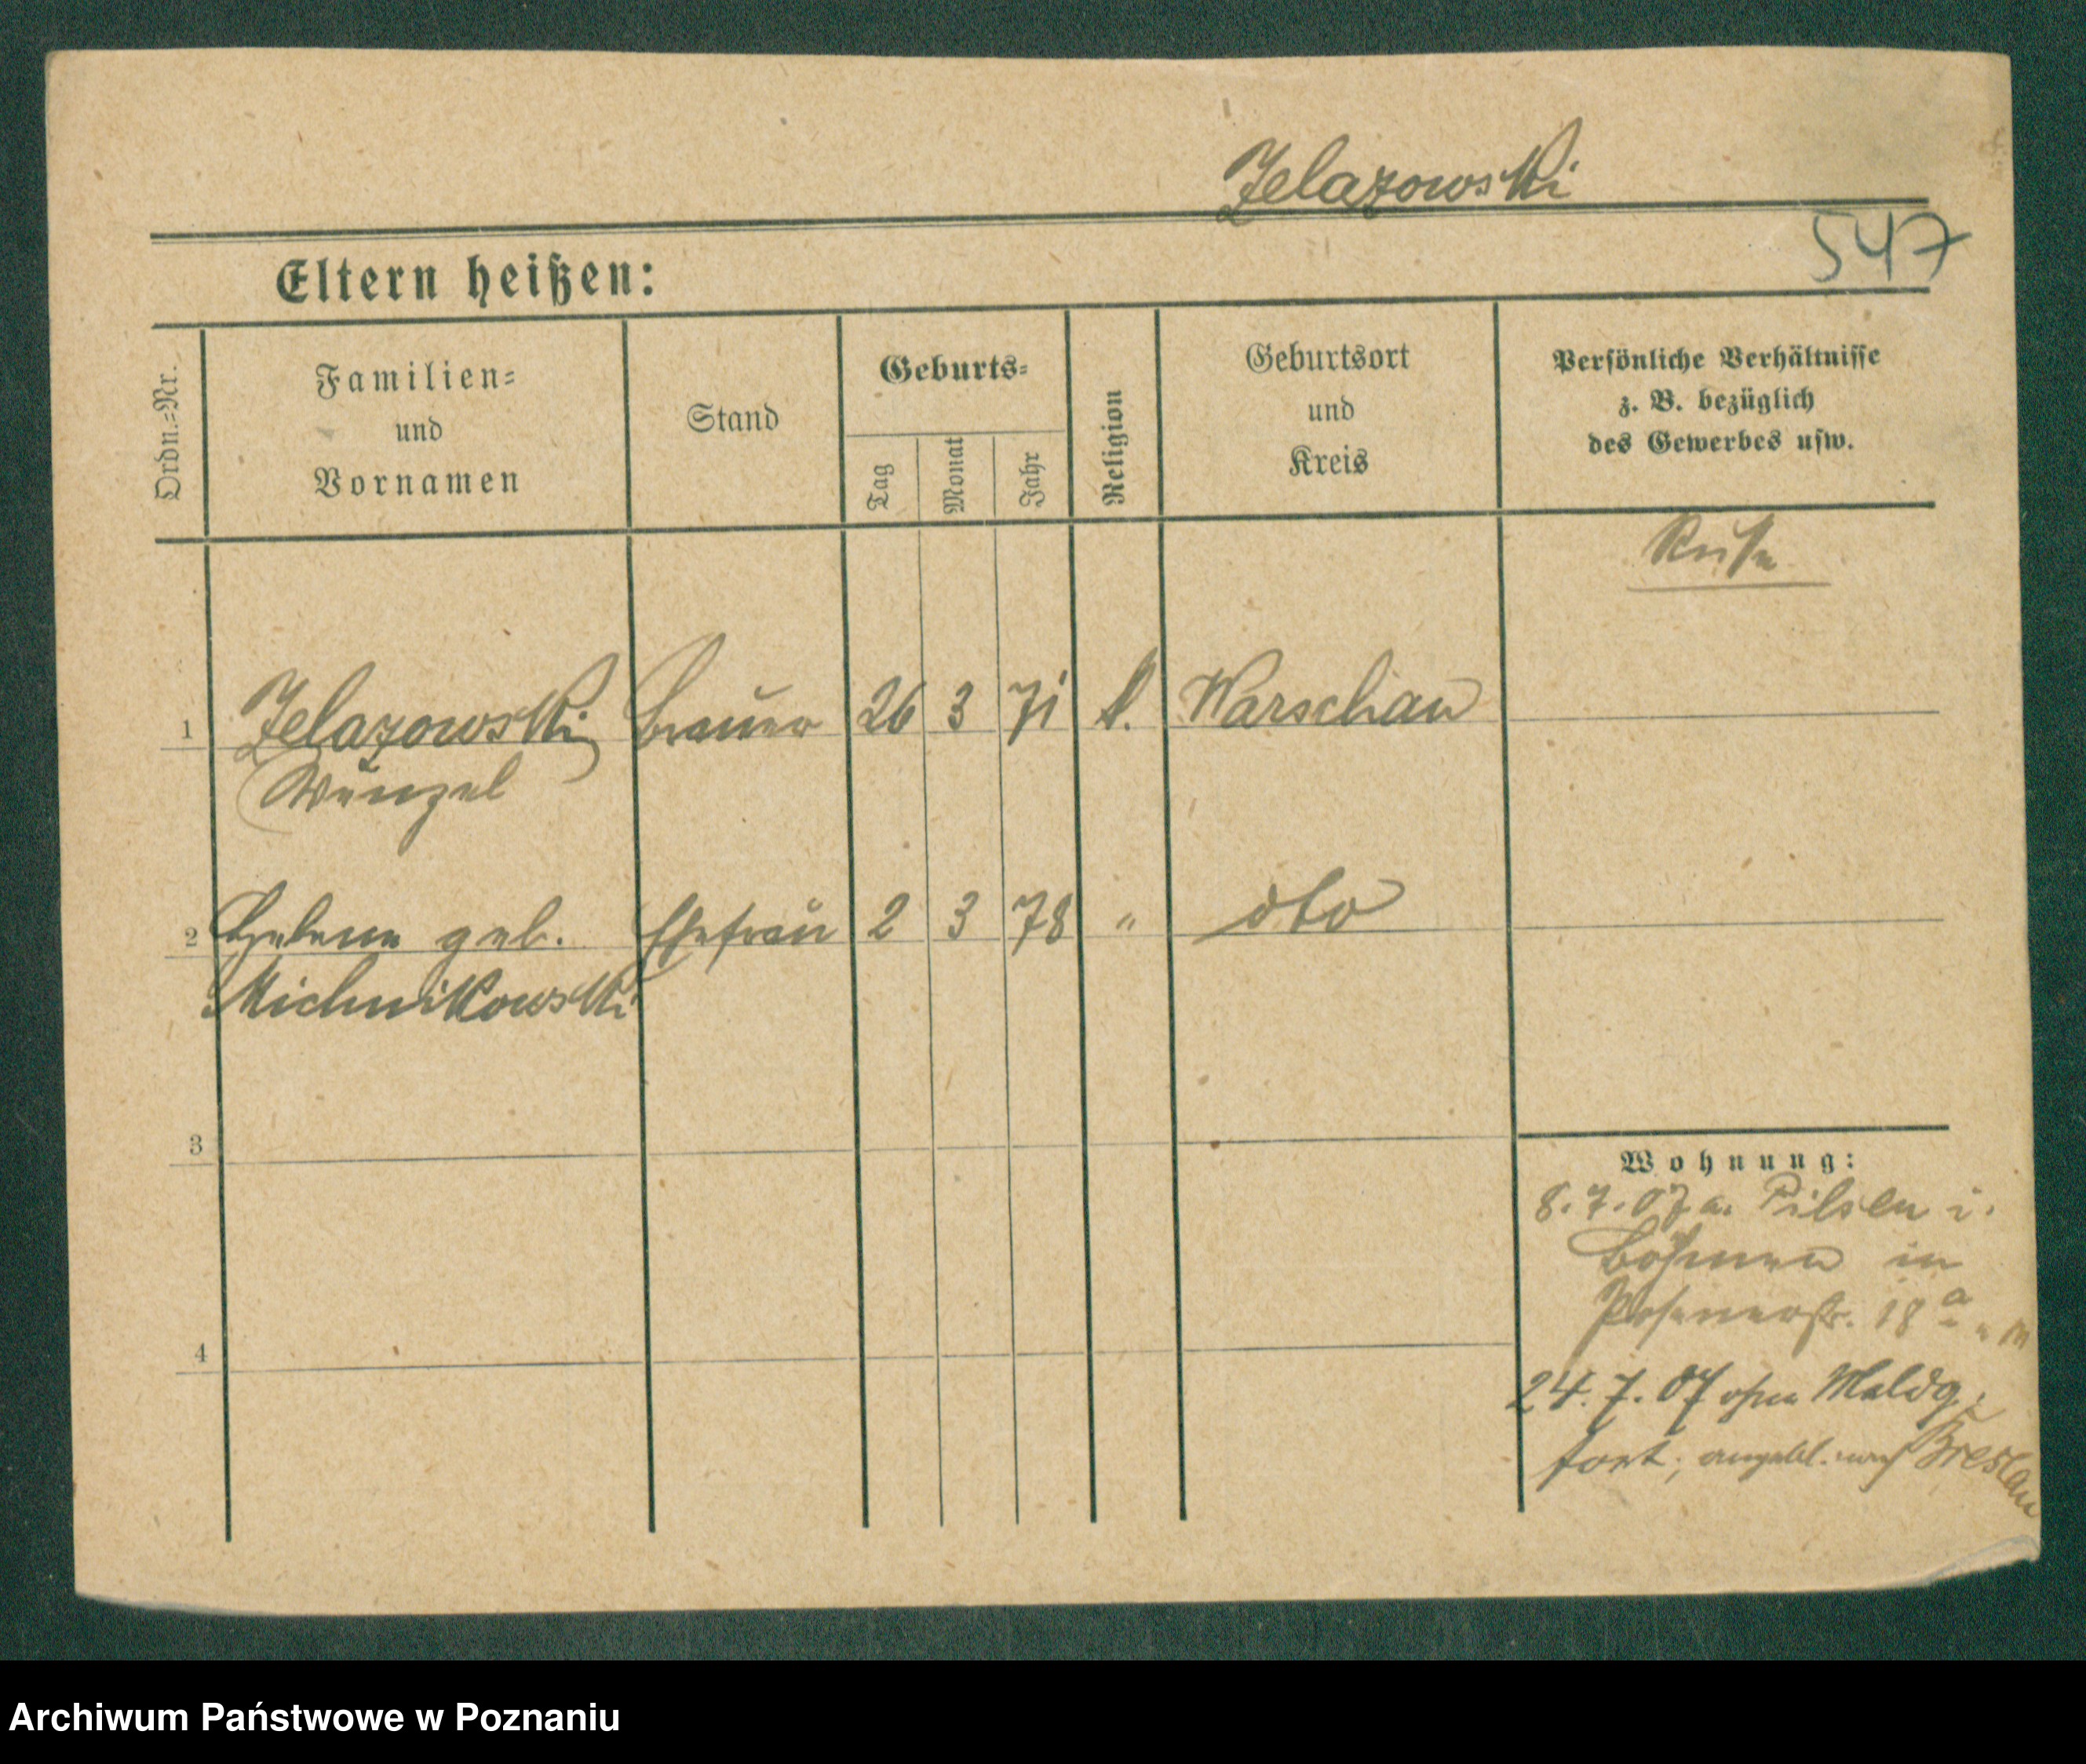 Zelazowski
547
Eltern heißen:
Ordn.=Nr.
Familien=
und
Vornamen
Stand
Geburts=
Tag
Monat
Jahr
Religion
Geburtsort
und
Kreis
Persönliche Verhältnisse
z. B. bezüglich
des Gewerbes usw.
Russe
1 Zelazowski Brauer 26 3 71 k. Warschau
Wenzel
2 Helene geb. Ehefrau 2 3 78 " dto
Michnikowski
3
4
Wohnung:
8.7.07 a. Pilsen i.
Böhmen in
Posenerstr. 18 a
24.7.07 ohne Meldg.
fort, angebl. nach Breslau
Archiwum Państwowe w Poznaniu